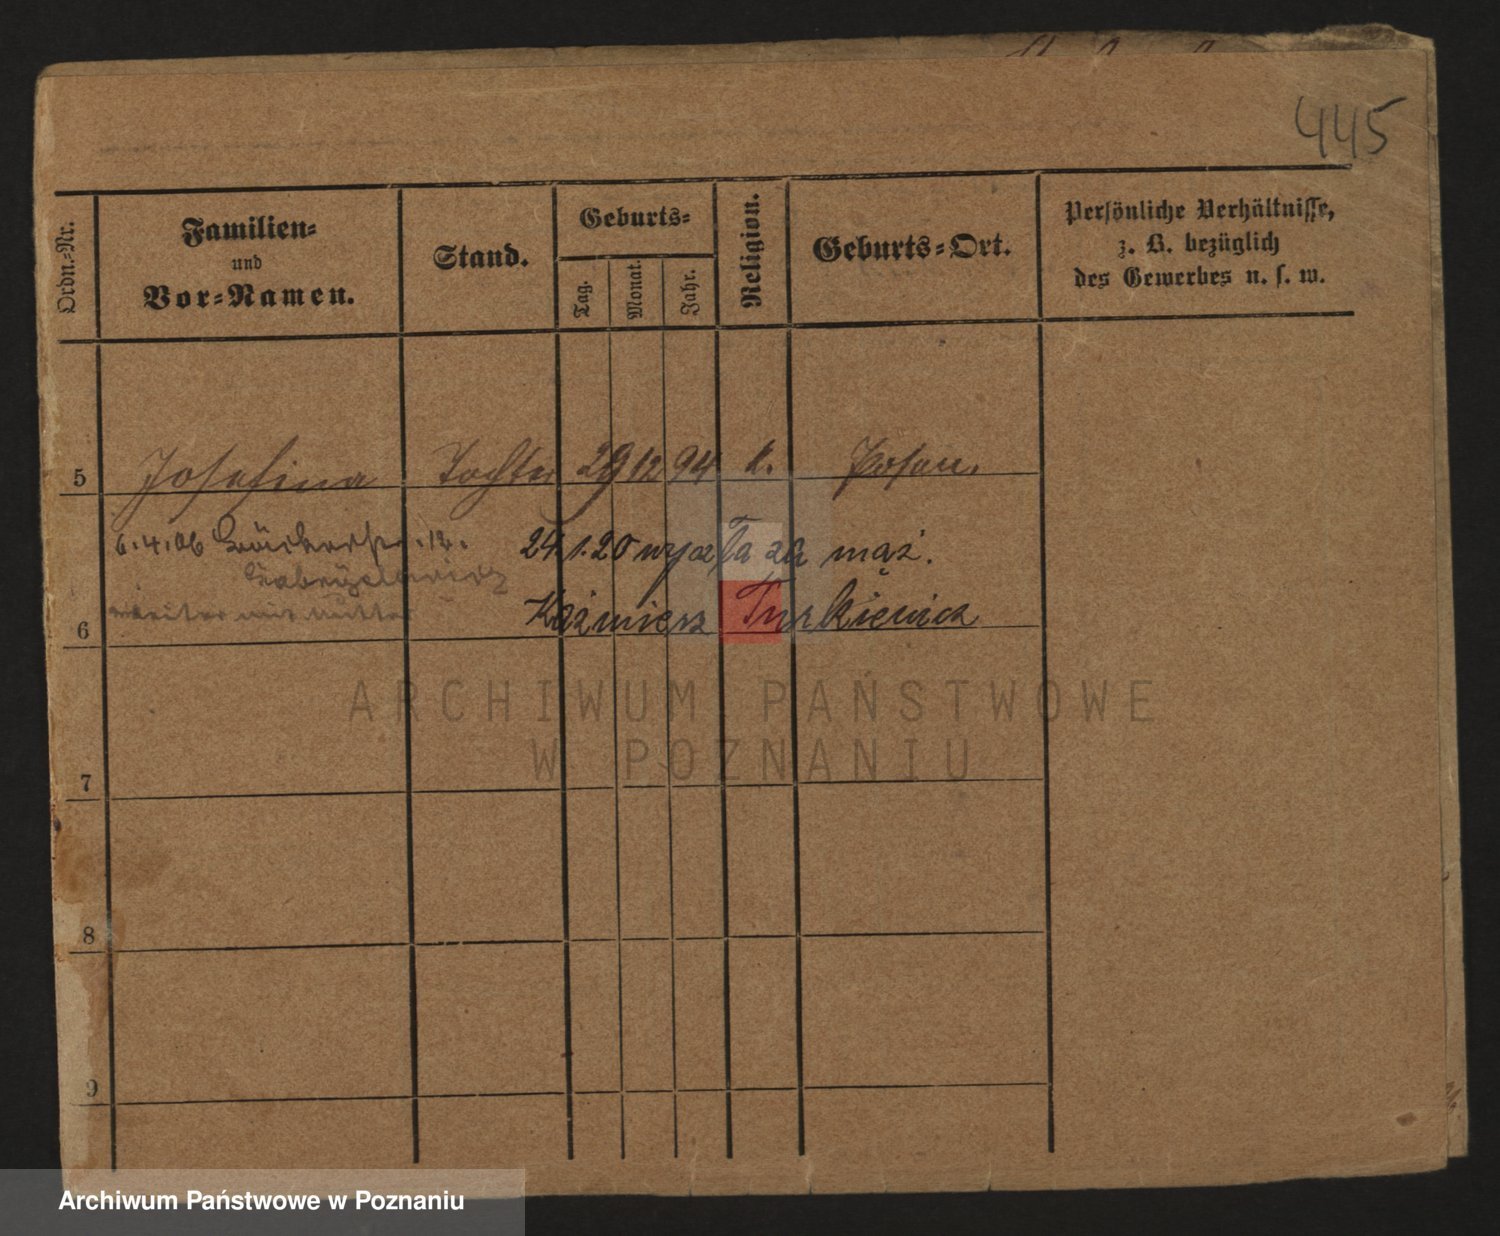 445
Ordn.-Nr.
Familien-
und
Vor-Namen.
Stand.
Geburts-
Tag.
Monat.
Jahr.
Religion.
Geburts-Ort.
Persönliche Verhältnisse,
z. B. bezüglich
des Gewerbes u. s. w.
5 Josefina Tochter 29 12 94 k. Posen.
6.4.06 Bäckerstr. 12. 24.1.20 wyszła za mąż.
weiter mit Mutter Kaźmierz Turkiewicz
6
ARCHIWUM PAŃSTWOWE
W POZNANIU
7
8
9
Archiwum Państwowe w Poznaniu